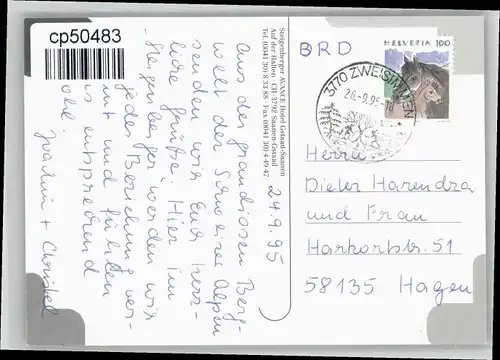 cp50483
Steigenberger AVANCE Hotel Gstaad-Saanen
Auf der Halten · CH-3792 Saanen-Gstaad
Tel. 0041 30) 8 33 88 · Fax 0041 30) 4 49 47
24.9.95
Aus der grandiosen Berg-
welt der Schweizer Alpen
senden wir Euch herz-
liche Grüße. Hier im
"Steigenberger" werden wir
in jeder Beziehung ver-
wöhnt und fühlen
uns entsprechend
wohl.
Joachim + Christel
BRD
HELVETIA 100
3770 ZWEISIMMEN
26.-9.95
Herrn
Dieter Harendza
und Frau
Harkortstr. 51
58135 Hagen